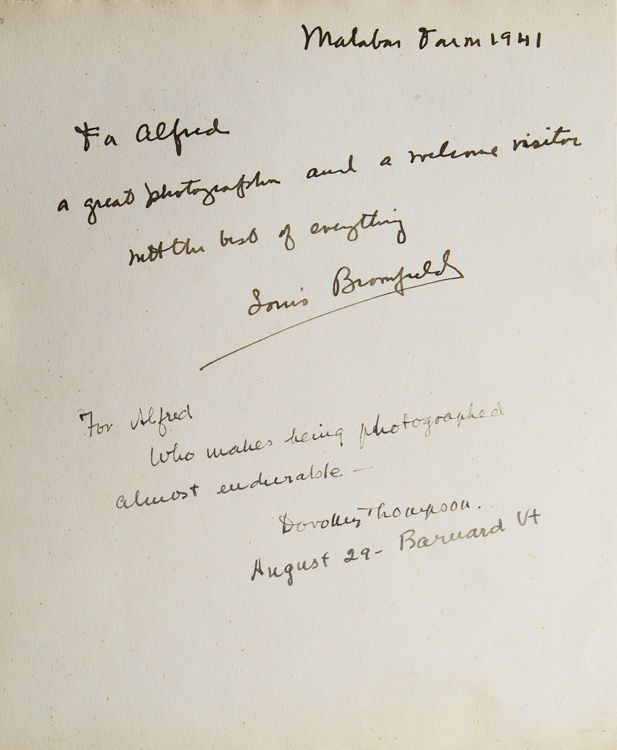 Malabar Farm 1941
Fo Alfred
a great photographer and a welcome visitor
with the best of everything
Louis Bromfield
For Alfred
Who makes being photographed
almost endurable —
Dorothy Thompson.
August 29 - Barnard Vt